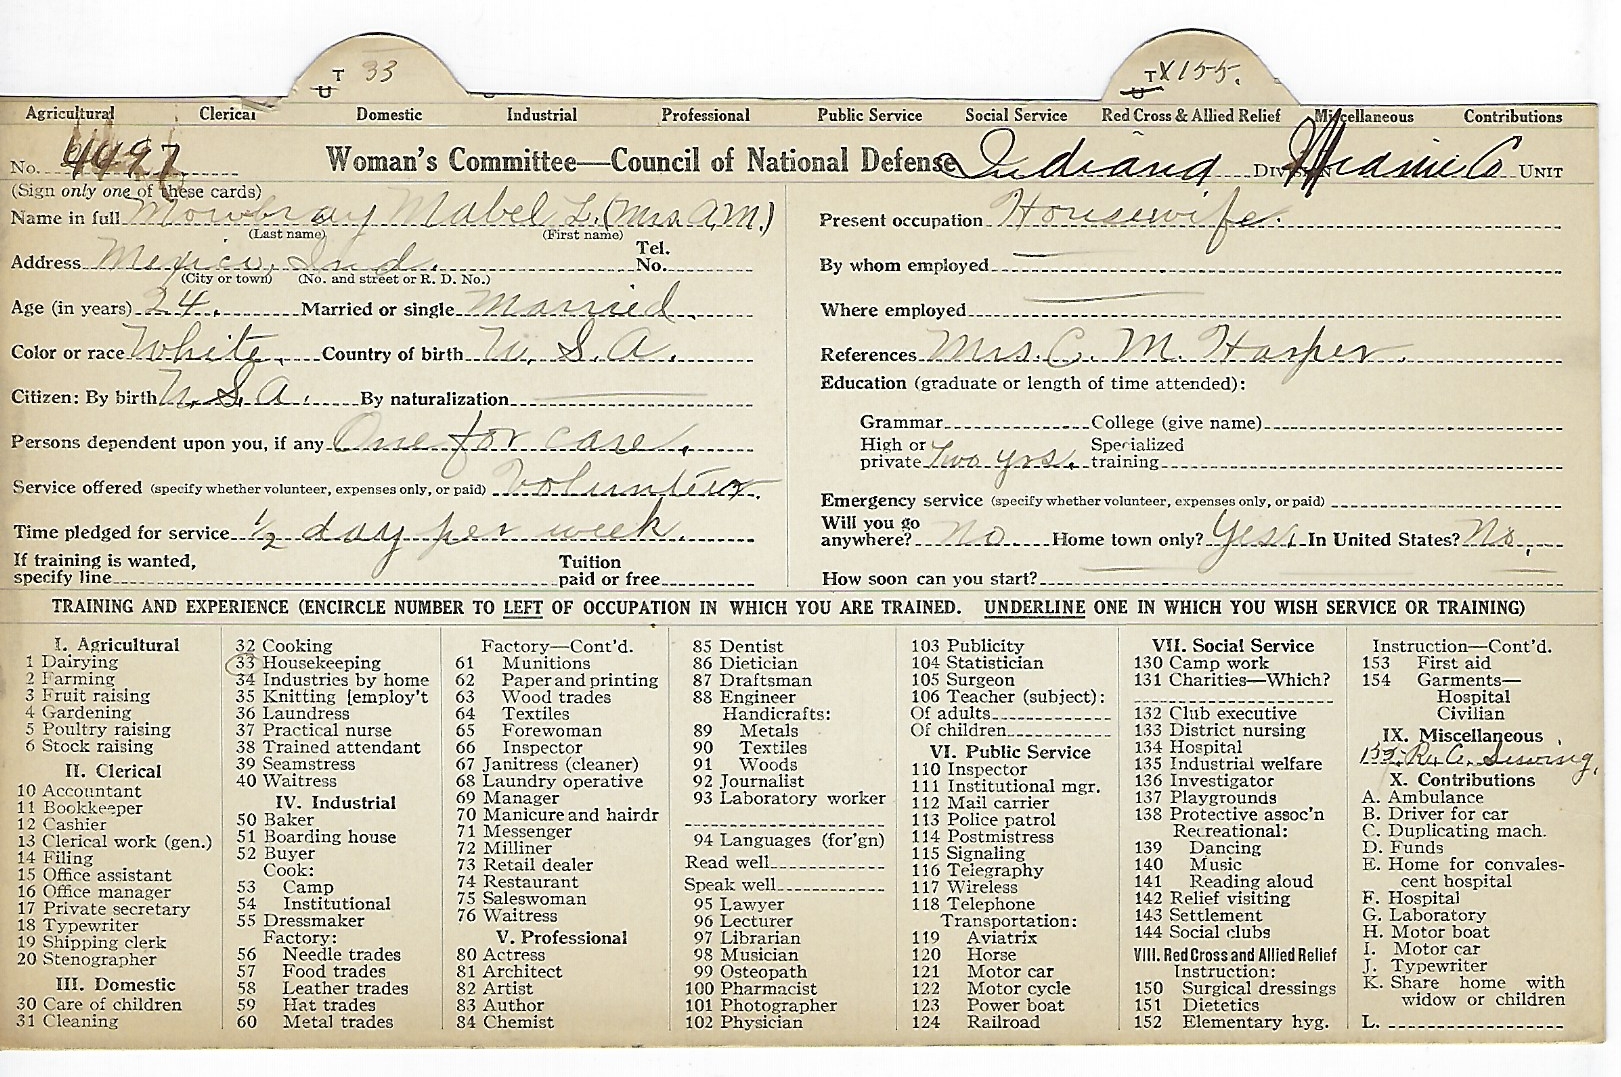 T 33
U
T X155.
U
Agricultural Clerical Domestic Industrial Professional Public Service Social Service Red Cross & Allied Relief Miscellaneous Contributions
No. Woman's Committee—Council of National Defense Indiana Division Miami Co Unit
(Sign only one of these cards)
Name in full Mowbray Mabel L. (Mrs. A.M.)
(Last name) (First name)
Address Mexico, Ind. Tel. No.
(City or town) (No. and street or R. D. No.)
Age (in years) 24. Married or single Married.
Color or race White. Country of birth U. S. A.
Citizen: By birth U. S. A. By naturalization
Persons dependent upon you, if any One for care.
Service offered (specify whether volunteer, expenses only, or paid) Volunteer.
Time pledged for service 1/2 day per week.
If training is wanted,
specify line Tuition
paid or free
Present occupation Housewife.
By whom employed
Where employed
References Mrs. C. M. Harper.
Education (graduate or length of time attended):
Grammar College (give name)
High or
private Two yrs. Specialized
training
Emergency service (specify whether volunteer, expenses only, or paid)
Will you go
anywhere? No Home town only? Yes. In United States? No.
How soon can you start?
TRAINING AND EXPERIENCE (ENCIRCLE NUMBER TO LEFT OF OCCUPATION IN WHICH YOU ARE TRAINED. UNDERLINE ONE IN WHICH YOU WISH SERVICE OR TRAINING)
I. Agricultural
1 Dairying
2 Farming
3 Fruit raising
4 Gardening
5 Poultry raising
6 Stock raising
II. Clerical
10 Accountant
11 Bookkeeper
12 Cashier
13 Clerical work (gen.)
14 Filing
15 Office assistant
16 Office manager
17 Private secretary
18 Typewriter
19 Shipping clerk
20 Stenographer
III. Domestic
30 Care of children
31 Cleaning
32 Cooking
33 Housekeeping
34 Industries by home
35 Knitting [employ't
36 Laundress
37 Practical nurse
38 Trained attendant
39 Seamstress
40 Waitress
IV. Industrial
50 Baker
51 Boarding house
52 Buyer
Cook:
53 Camp
54 Institutional
55 Dressmaker
Factory:
56 Needle trades
57 Food trades
58 Leather trades
59 Hat trades
60 Metal trades
Factory—Cont'd.
61 Munitions
62 Paper and printing
63 Wood trades
64 Textiles
65 Forewoman
66 Inspector
67 Janitress (cleaner)
68 Laundry operative
69 Manager
70 Manicure and hairdr
71 Messenger
72 Milliner
73 Retail dealer
74 Restaurant
75 Saleswoman
76 Waitress
V. Professional
80 Actress
81 Architect
82 Artist
83 Author
84 Chemist
85 Dentist
86 Dietician
87 Draftsman
88 Engineer
Handicrafts:
89 Metals
90 Textiles
91 Woods
92 Journalist
93 Laboratory worker
94 Languages (for'gn)
Read well
Speak well
95 Lawyer
96 Lecturer
97 Librarian
98 Musician
99 Osteopath
100 Pharmacist
101 Photographer
102 Physician
103 Publicity
104 Statistician
105 Surgeon
106 Teacher (subject):
Of adults
Of children
VI. Public Service
110 Inspector
111 Institutional mgr.
112 Mail carrier
113 Police patrol
114 Postmistress
115 Signaling
116 Telegraphy
117 Wireless
118 Telephone
Transportation:
119 Aviatrix
120 Horse
121 Motor car
122 Motor cycle
123 Power boat
124 Railroad
VII. Social Service
130 Camp work
131 Charities—Which?
132 Club executive
133 District nursing
134 Hospital
135 Industrial welfare
136 Investigator
137 Playgrounds
138 Protective assoc'n
Recreational:
139 Dancing
140 Music
141 Reading aloud
142 Relief visiting
143 Settlement
144 Social clubs
VIII. Red Cross and Allied Relief
Instruction:
150 Surgical dressings
151 Dietetics
152 Elementary hyg.
Instruction—Cont'd.
153 First aid
154 Garments—
Hospital
Civilian
IX. Miscellaneous
155. R. C. Sewing.
X. Contributions
A. Ambulance
B. Driver for car
C. Duplicating mach.
D. Funds
E. Home for convales-
cent hospital
F. Hospital
G. Laboratory
H. Motor boat
I. Motor car
J. Typewriter
K. Share home with
widow or children
L.